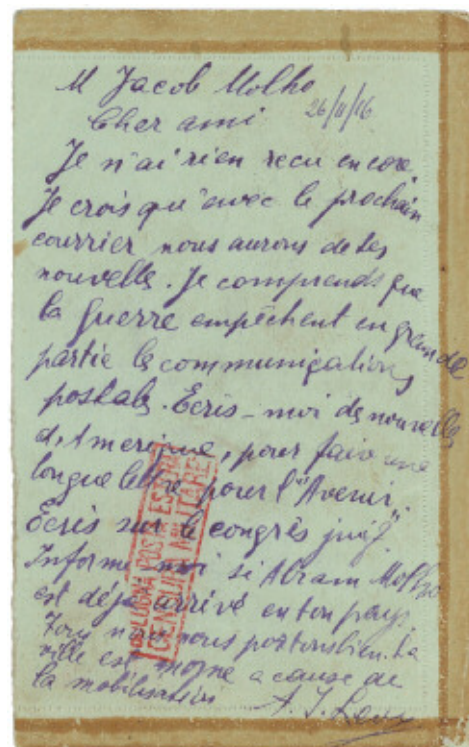 M Jacob Molho
Cher ami 26/11/16
Je n'ai rien recu encore,
Je crois qu'avec le prochain
courrier nous aurons de tes
nouvelle. Je comprends que
la guerre empêchent en grande
partie les communications
postals. Ecris-moi de nouvells
d'Amerique, pour faire une
longue lettre pour l'"Avenir".
Ecris sur le congrès juif.
Informe moi si Abram Molho
est déjà arrivé en ton pays.
nous portons bien. La
ville est morne a cause de
la mobilisation A. J. Levi
POSTA ESTERA
CENSURA MILITARE